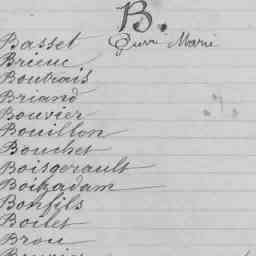 B.
Basset Pierre Marie
Brieuc
Boutrais
Briand
Bouvier
Bouillon
Bouchet
Boisgerault
Boishadam
Bonfils
Boitet
Brou